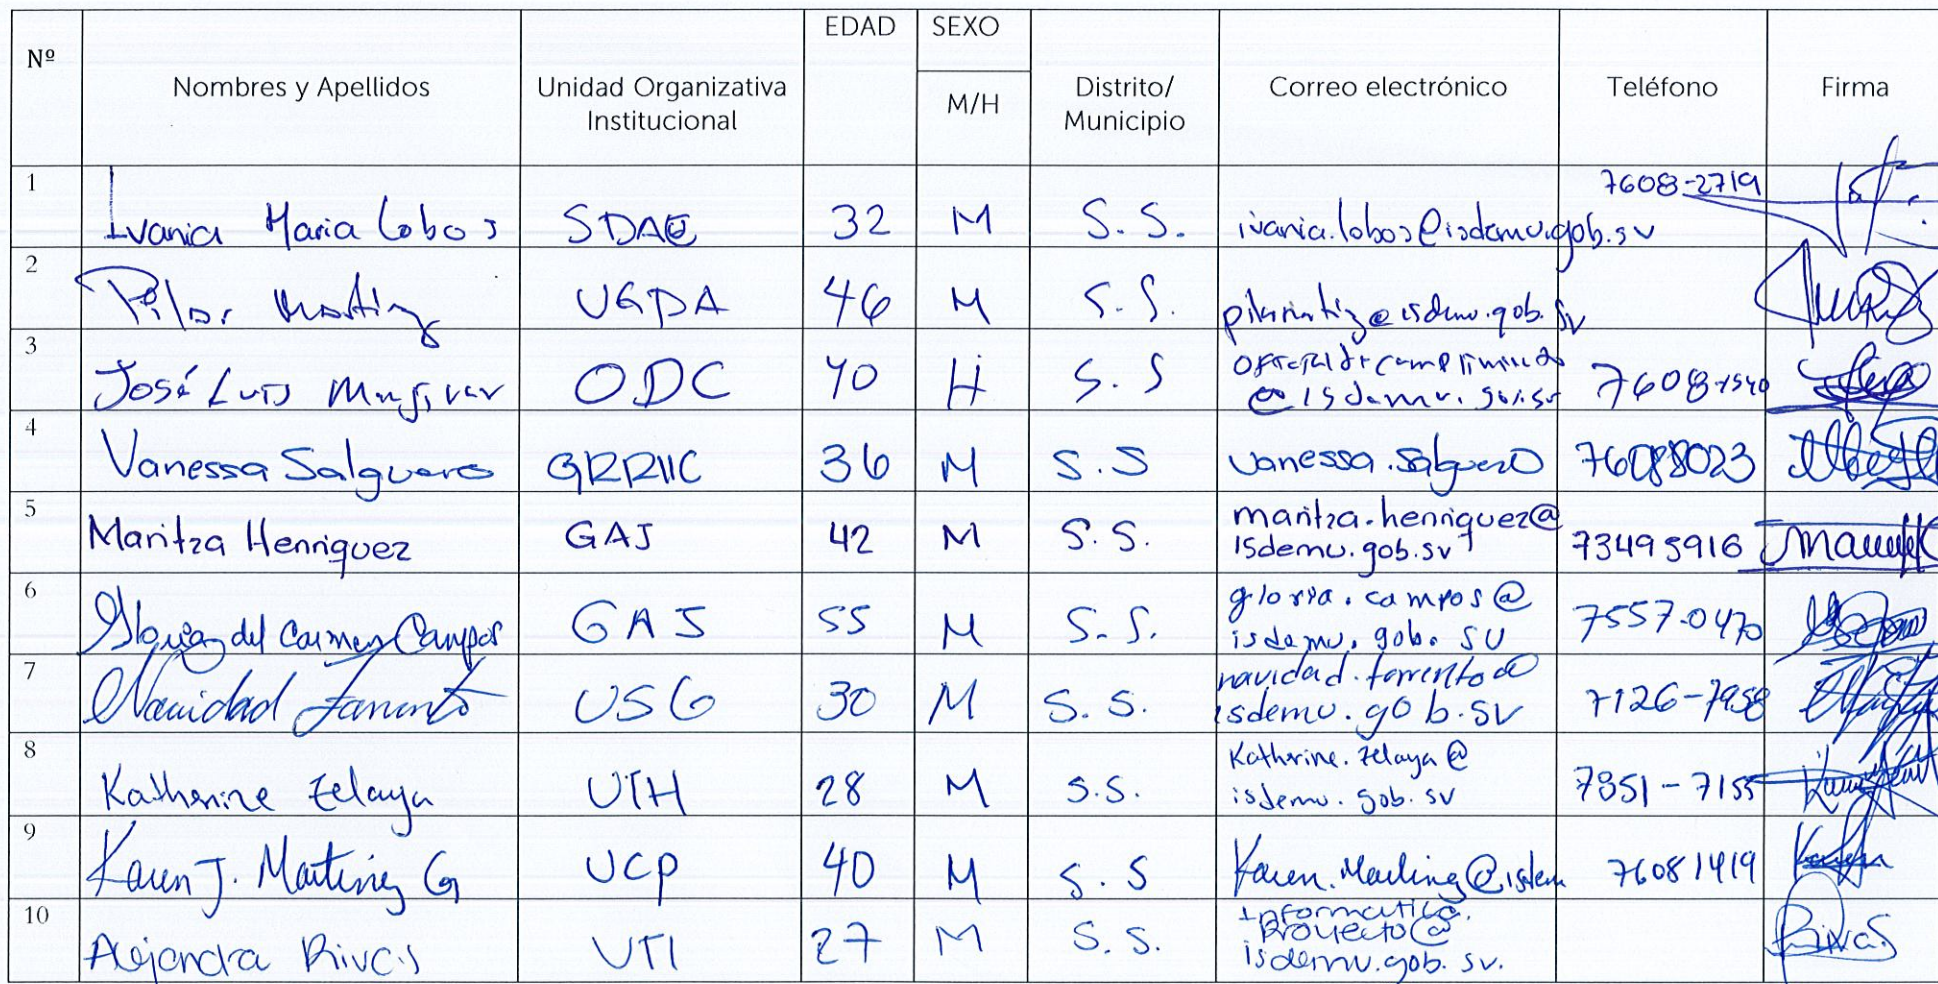 Nº Nombres y Apellidos Unidad Organizativa Institucional EDAD SEXO M/H Distrito/ Municipio Correo electrónico Teléfono Firma
1 Ivania Maria Lobos SDAE 32 M S.S. ivania.lobos@isdemu.gob.sv 7608-2719
2 Pilar UGDA 46 M S.S.
3 José Luis ODC 40 H S.S @isdemu. 7608-1540
4 Vanessa Salguero GRRIIC 36 M S.S vanessa.salguero 76088023
5 Maritza Henriquez GAJ 42 M S.S. maritza.henriquez@
isdemu.gob.sv 73495916
6 Gloria del Carmen Campos GAJ 55 M S.S. gloria.campos@
isdemu.gob.sv 7557-0470
7 Navidad USG 30 M S.S. navidad.
isdemu.gob.sv 7126-7958
8 Katherine Zelaya UTH 28 M S.S. Katherine.zelaya@
isdemu.gob.sv 7351-7155
9 Karen J. Martinez G UCP 40 M S.S Karen.Martinez@isdem 76081419
10 Alejandra Rivas UTI 27 M S.S. Informatica.
Proyecto@
isdemu.gob.sv. Rivas